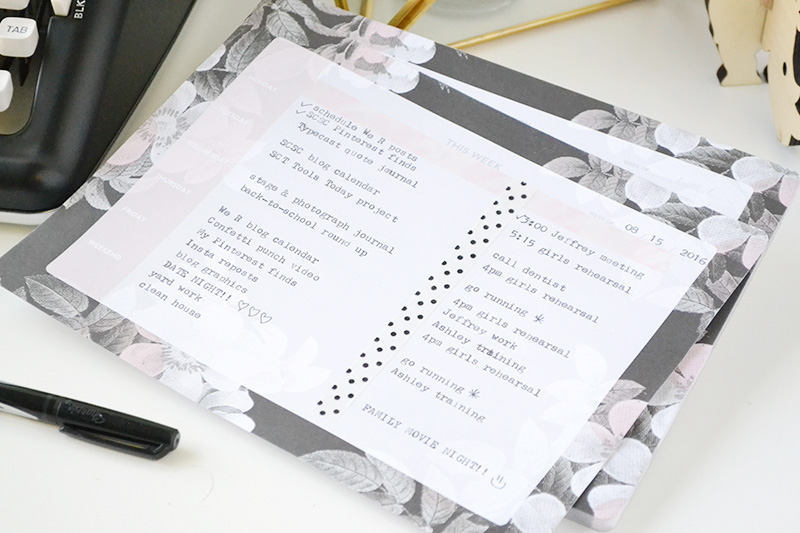 TAB
BLK
THIS WEEK
08 . 15 . 2016
✓schedule We R posts
✓SCSC Pinterest finds
Typecast quote journal
SCSC blog calendar
SCT Tools Today project
stage & photograph journal
back-to-school round up
We R blog calendar
Confetti punch video
My Pinterest finds
Insta reposts
blog graphics
DATE NIGHT!! ♡♡♡
yard work
clean house
THURSDAY
FRIDAY
WEEKEND
✓3:00 Jeffrey meeting
5:15 girls rehearsal
call dentist
4pm girls rehearsal
go running *
4pm girls rehearsal
Jeffrey work
Ashley training
4pm girls rehearsal
go running *
Ashley training
FAMILY MOVIE NIGHT!! ☺
Sharpie